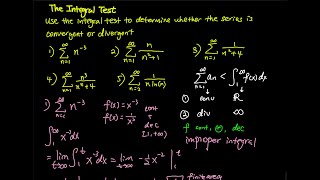 The Integral Test
Use the integral test to determine whether the series is
convergent or divergent
1) ∑_{n=1}^{∞} n^{-3} 2) ∑_{n=1}^{∞} n/(n²+1) 3) ∑_{n=1}^{∞} 1/(n²+4)
4) ∑_{n=1}^{∞} n³/(n⁴+4) 5) ∑_{n=2}^{∞} 1/(n ln(n)) ∑_{n=1}^{∞} an < ∫_1^∞ f(x)dx
① conv ℝ
② div ∞
f cont, ⊕, dec
improper integral
1) ∑_{n=1}^{∞} n^{-3} f(x) = x^{-3} cont
f(x) = 1/x³ + dec
[1, +∞)
∫_1^∞ x^{-3}dx
= lim_{t→∞} ∫_1^t x^{-3}dx = lim_{t→∞} -½x^{-2} |_1^t
finite area